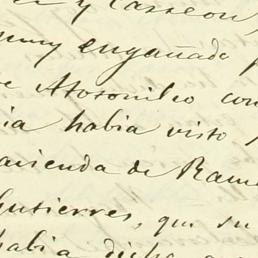 y Carreon,
muy engañado
Atotonilco con
ia habia visto
acienda de Ram
Gutierres, que su
habia dicho